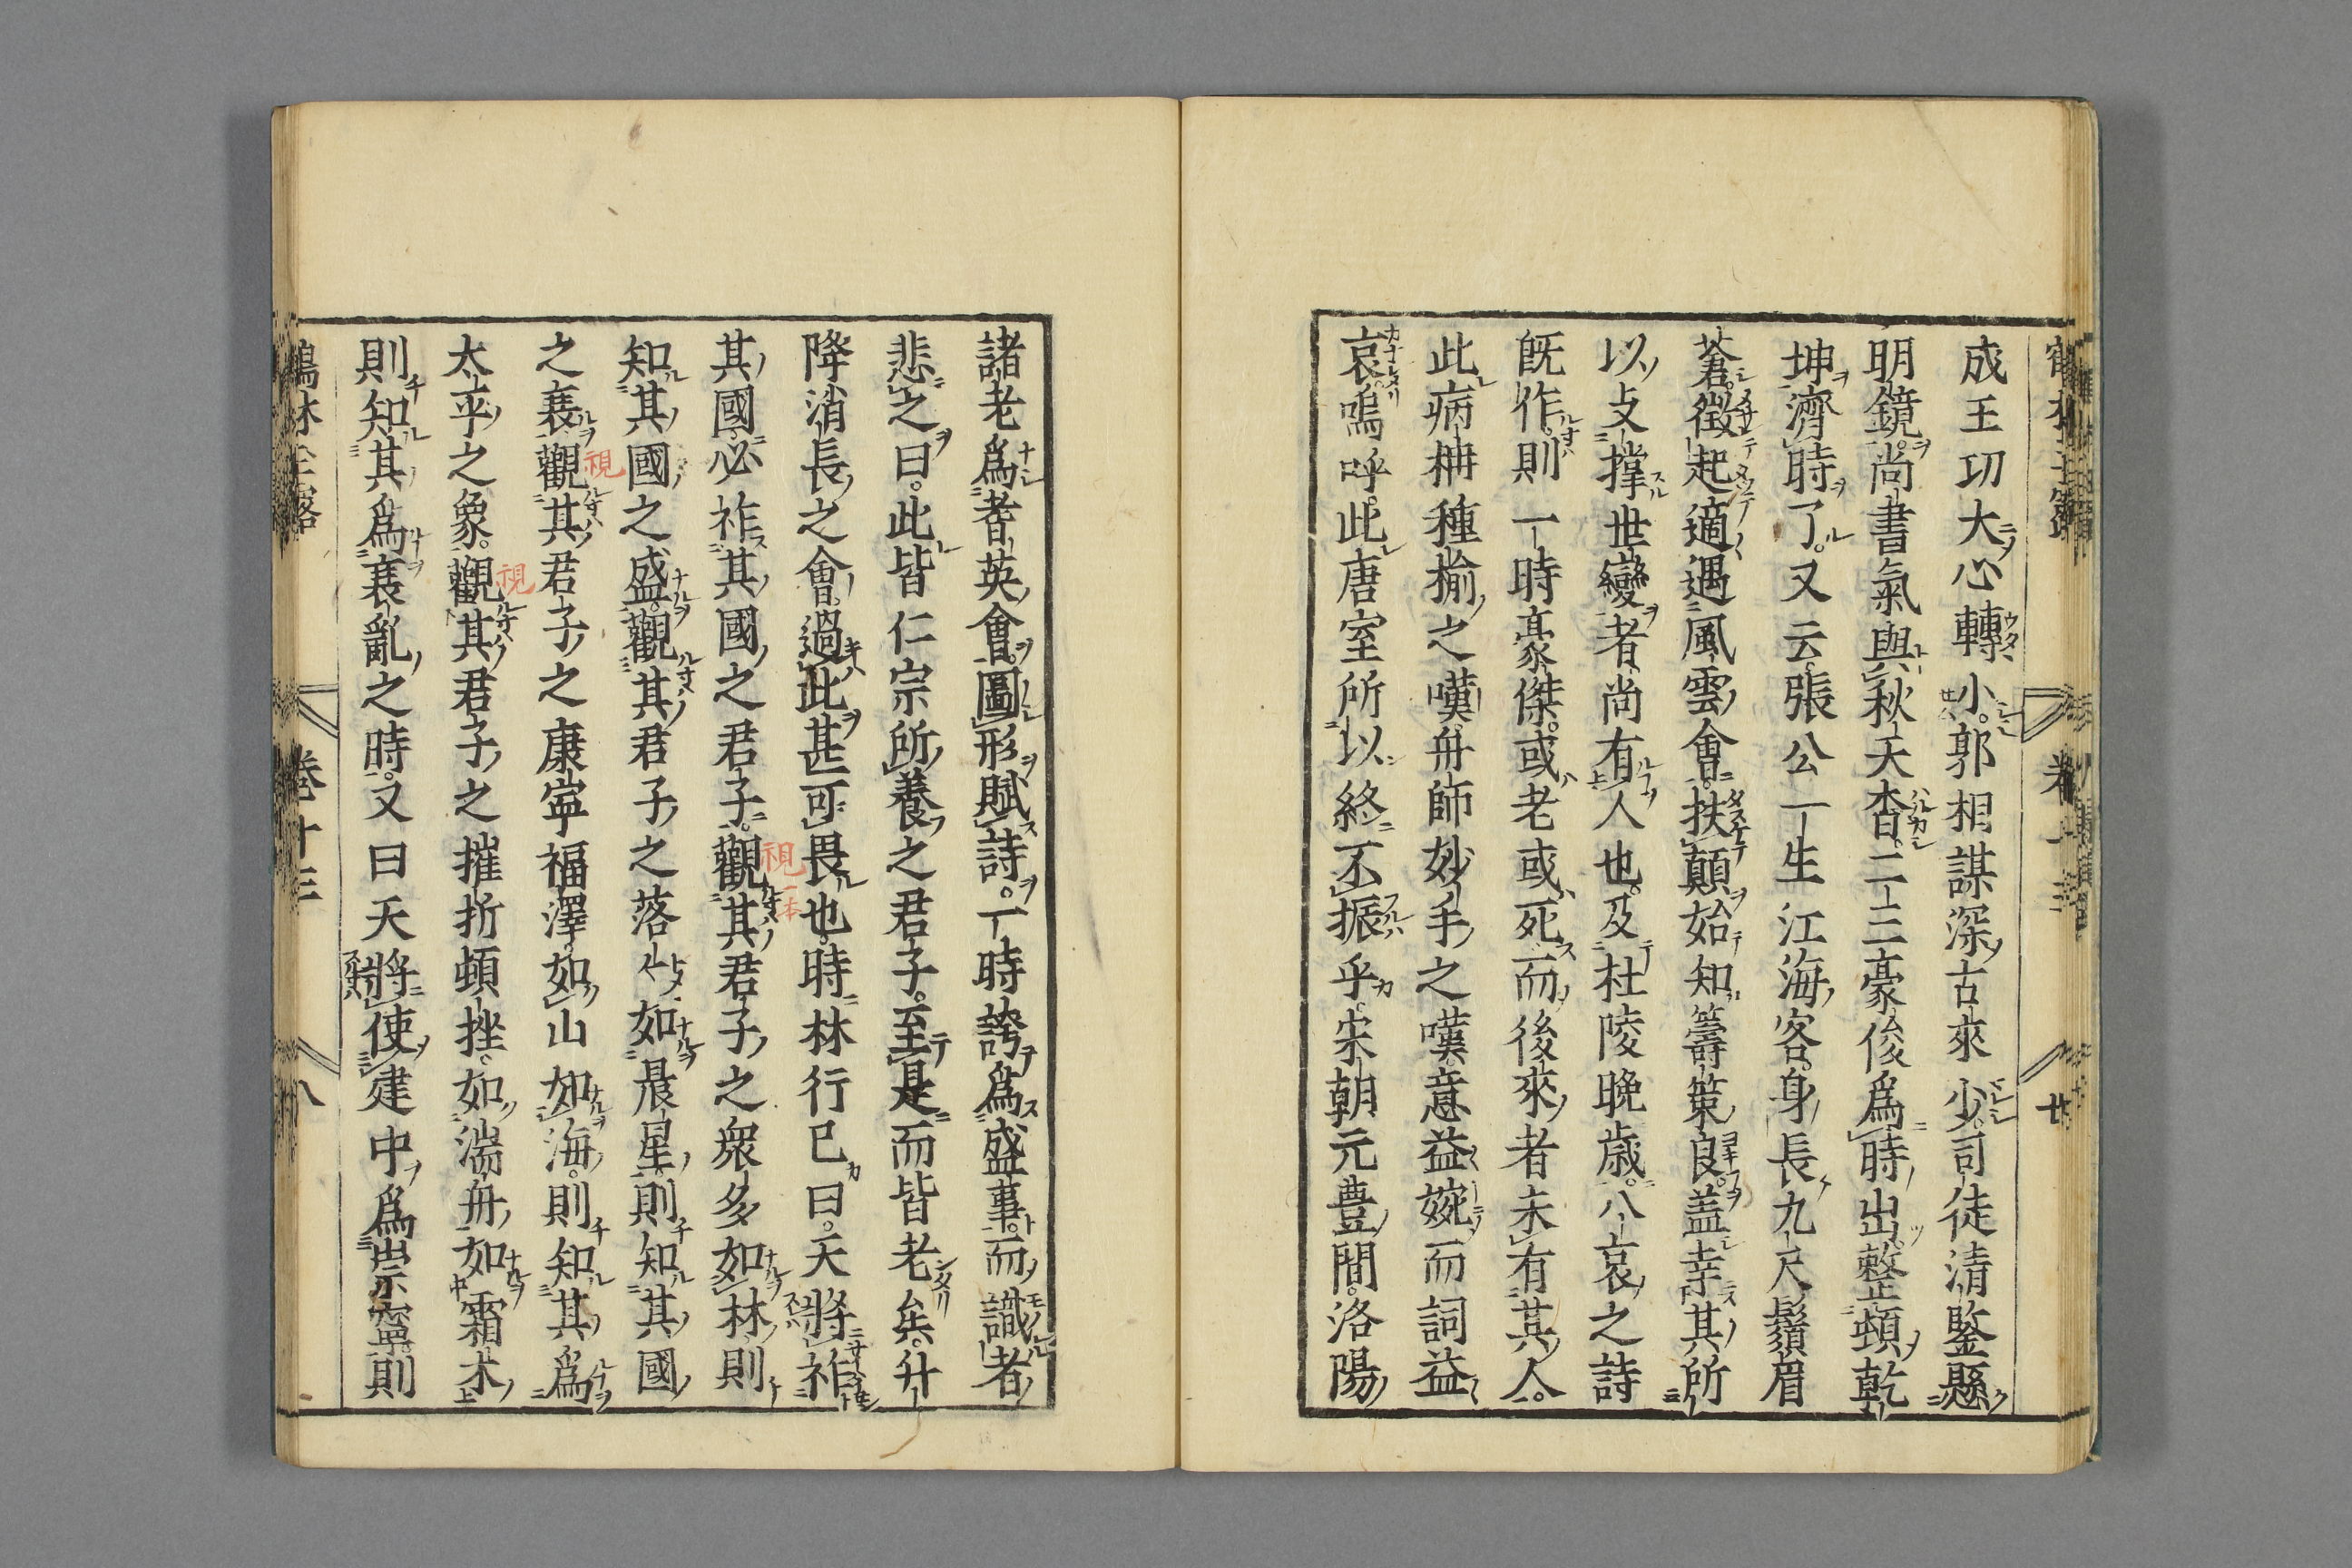 成王功大心轉小郭相謀深古來少司徒清鑒懸
明鏡尚書氣與秋天杳二三豪俊爲時出整頓乾
坤濟時了又云張公一生江海客身長九尺鬚眉
蒼徵起適遇風雲會扶顛始知籌策良蓋幸其所
以支撑世變者尚有人也及杜陵晚歲八哀之詩
旣作則一時豪傑或老或死而後來者未有其人
此病柟種榆之嘆舟師妙手之嘆意益婉而詞益
哀嗚呼此唐室所以終不振乎宋朝元豊間洛陽
諸老爲耆英會圖形賦詩一時誇爲盛事而識者
悲之曰此皆仁宗所養之君子至是而皆老矣升
降消長之會過此甚可畏也時林行已曰天將祚
其國必祚其國之君子觀其君子之衆多如林則
視一本
知其國之盛觀其君子之落〻如晨星則知其國
之衰觀其君子之康寧福澤如山如海則知其爲
視
太平之象觀其君子之摧折頓挫如湍舟如霜木
視
則知其爲衰亂之時又曰天將使建中爲崇寧則
鶴林玉露 卷十三 八